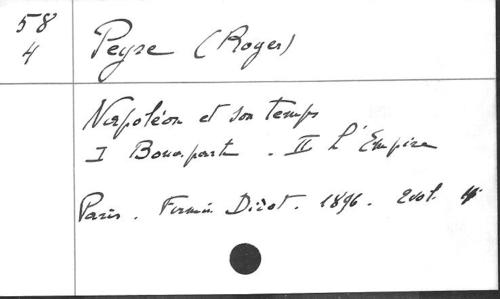 58
4
Peyre (Roger)
Napoléon et son temps
I Bonaparte . II L'Empire
Paris . Firmin Didot . 1896 . 2 vol.